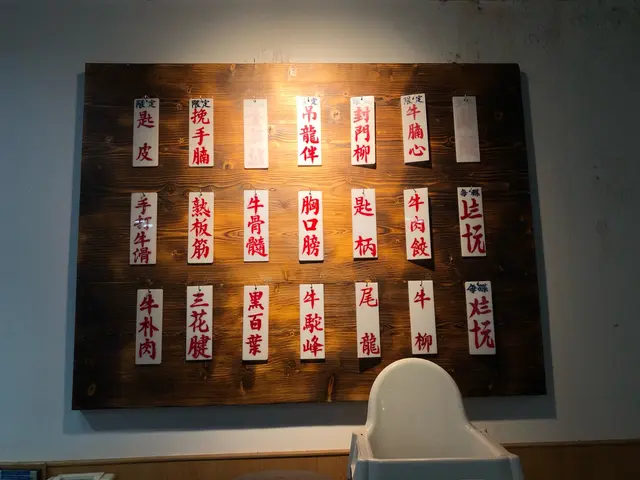 限定
匙皮
限定
挽手腩
限定
吊龍伴
限定
封門柳
限定
牛腩心
手打牛滑
熟板筋
牛骨髓
胸口膀
匙柄
牛肉餃
牛朴肉
三花腱
黑百葉
牛駝峰
尾龍
牛柳